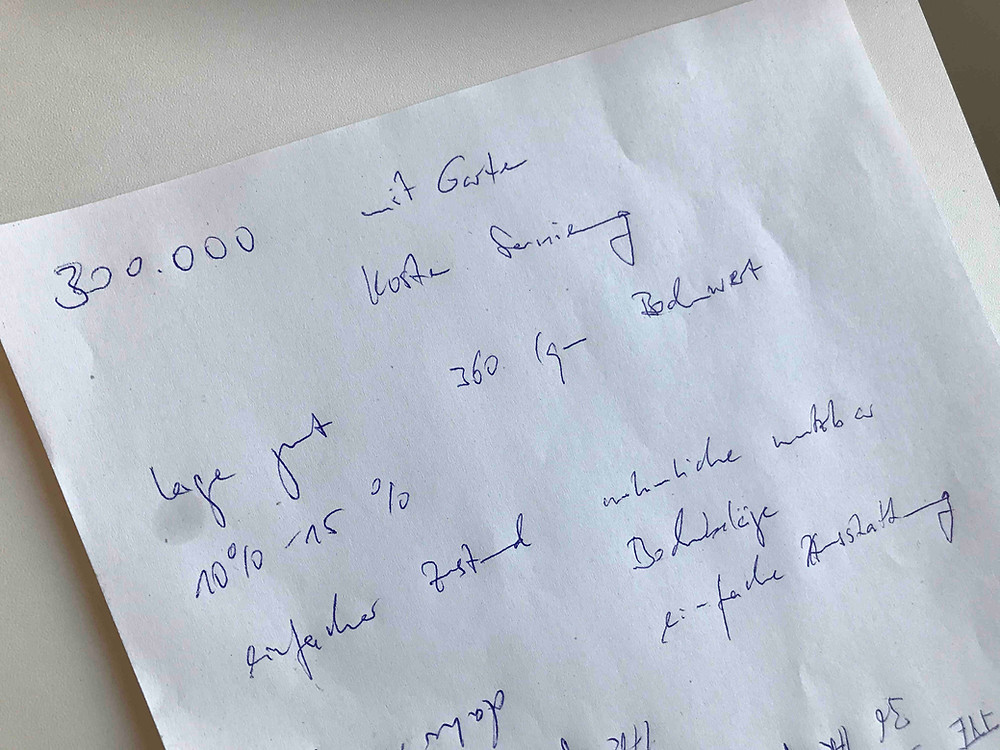 300.000
mit Garten
Kosten Sanierung
360 /qm Bodenwert
Lage gut
10% - 15 %
einfacher Zustand
nutzbar
Bodenbeläge
einfache Ausstattung